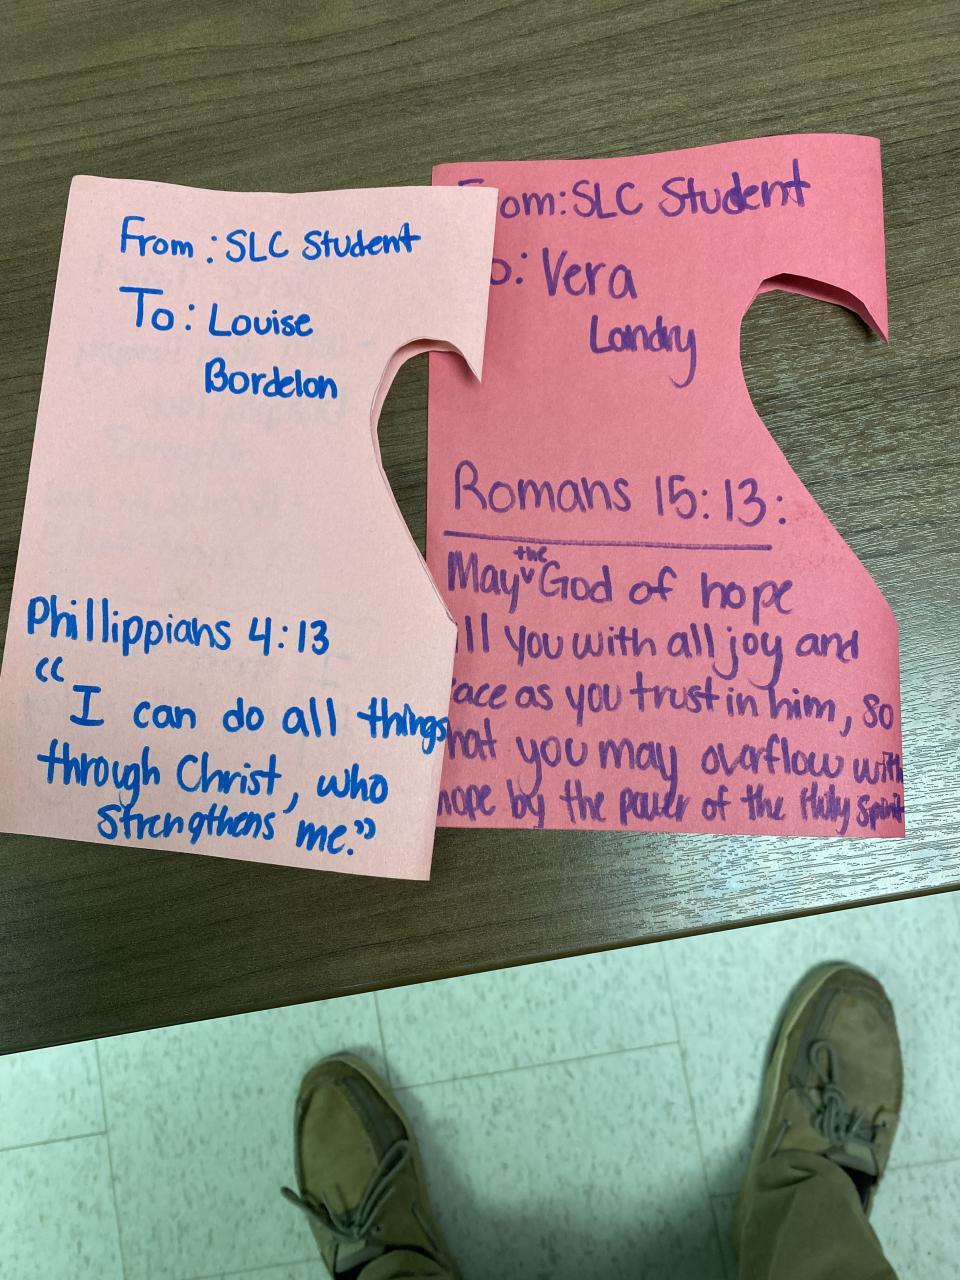 From: SLC Student
To: Louise
Bordelon
Phillippians 4:13
"I can do all things
through Christ, who
strengthens me."
om: SLC Student
o: Vera
Landry
Romans 15:13:
May the God of hope
ll you with all joy and
eace as you trust in him, so
hat you may overflow with
hope by the power of the Holy Spirit